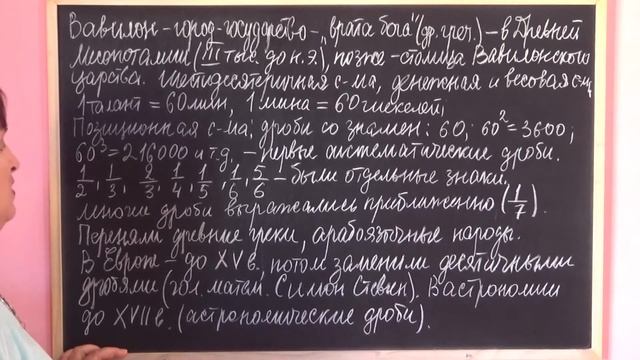 Вавилон – город-государство – „врата бога" (др. греч.) – в Древней
Месопотамии (III тыс. до н. э.), позже – столица Вавилонского
царства. Шестидесятеричная с-ма, денежная и весовая с-мы
1 талант = 60 мин, 1 мина = 60 шекелей,
Позиционная с-ма: дроби со знамен: 60, 60² = 3600,
60³ = 216000 и т.д. – первые систематические дроби.
1/2, 1/3, 2/3, 1/4, 1/5, 1/6, 5/6 – были отдельные знаки,
многие дроби выражались приближенно (1/7).
Переняли древние греки, арабоязычные народы.
В Европе – до XV в., потом заменили десятичными
дробями (гол. матем. Симон Стевин). В астрономии
до XVII в. (астрономические дроби).